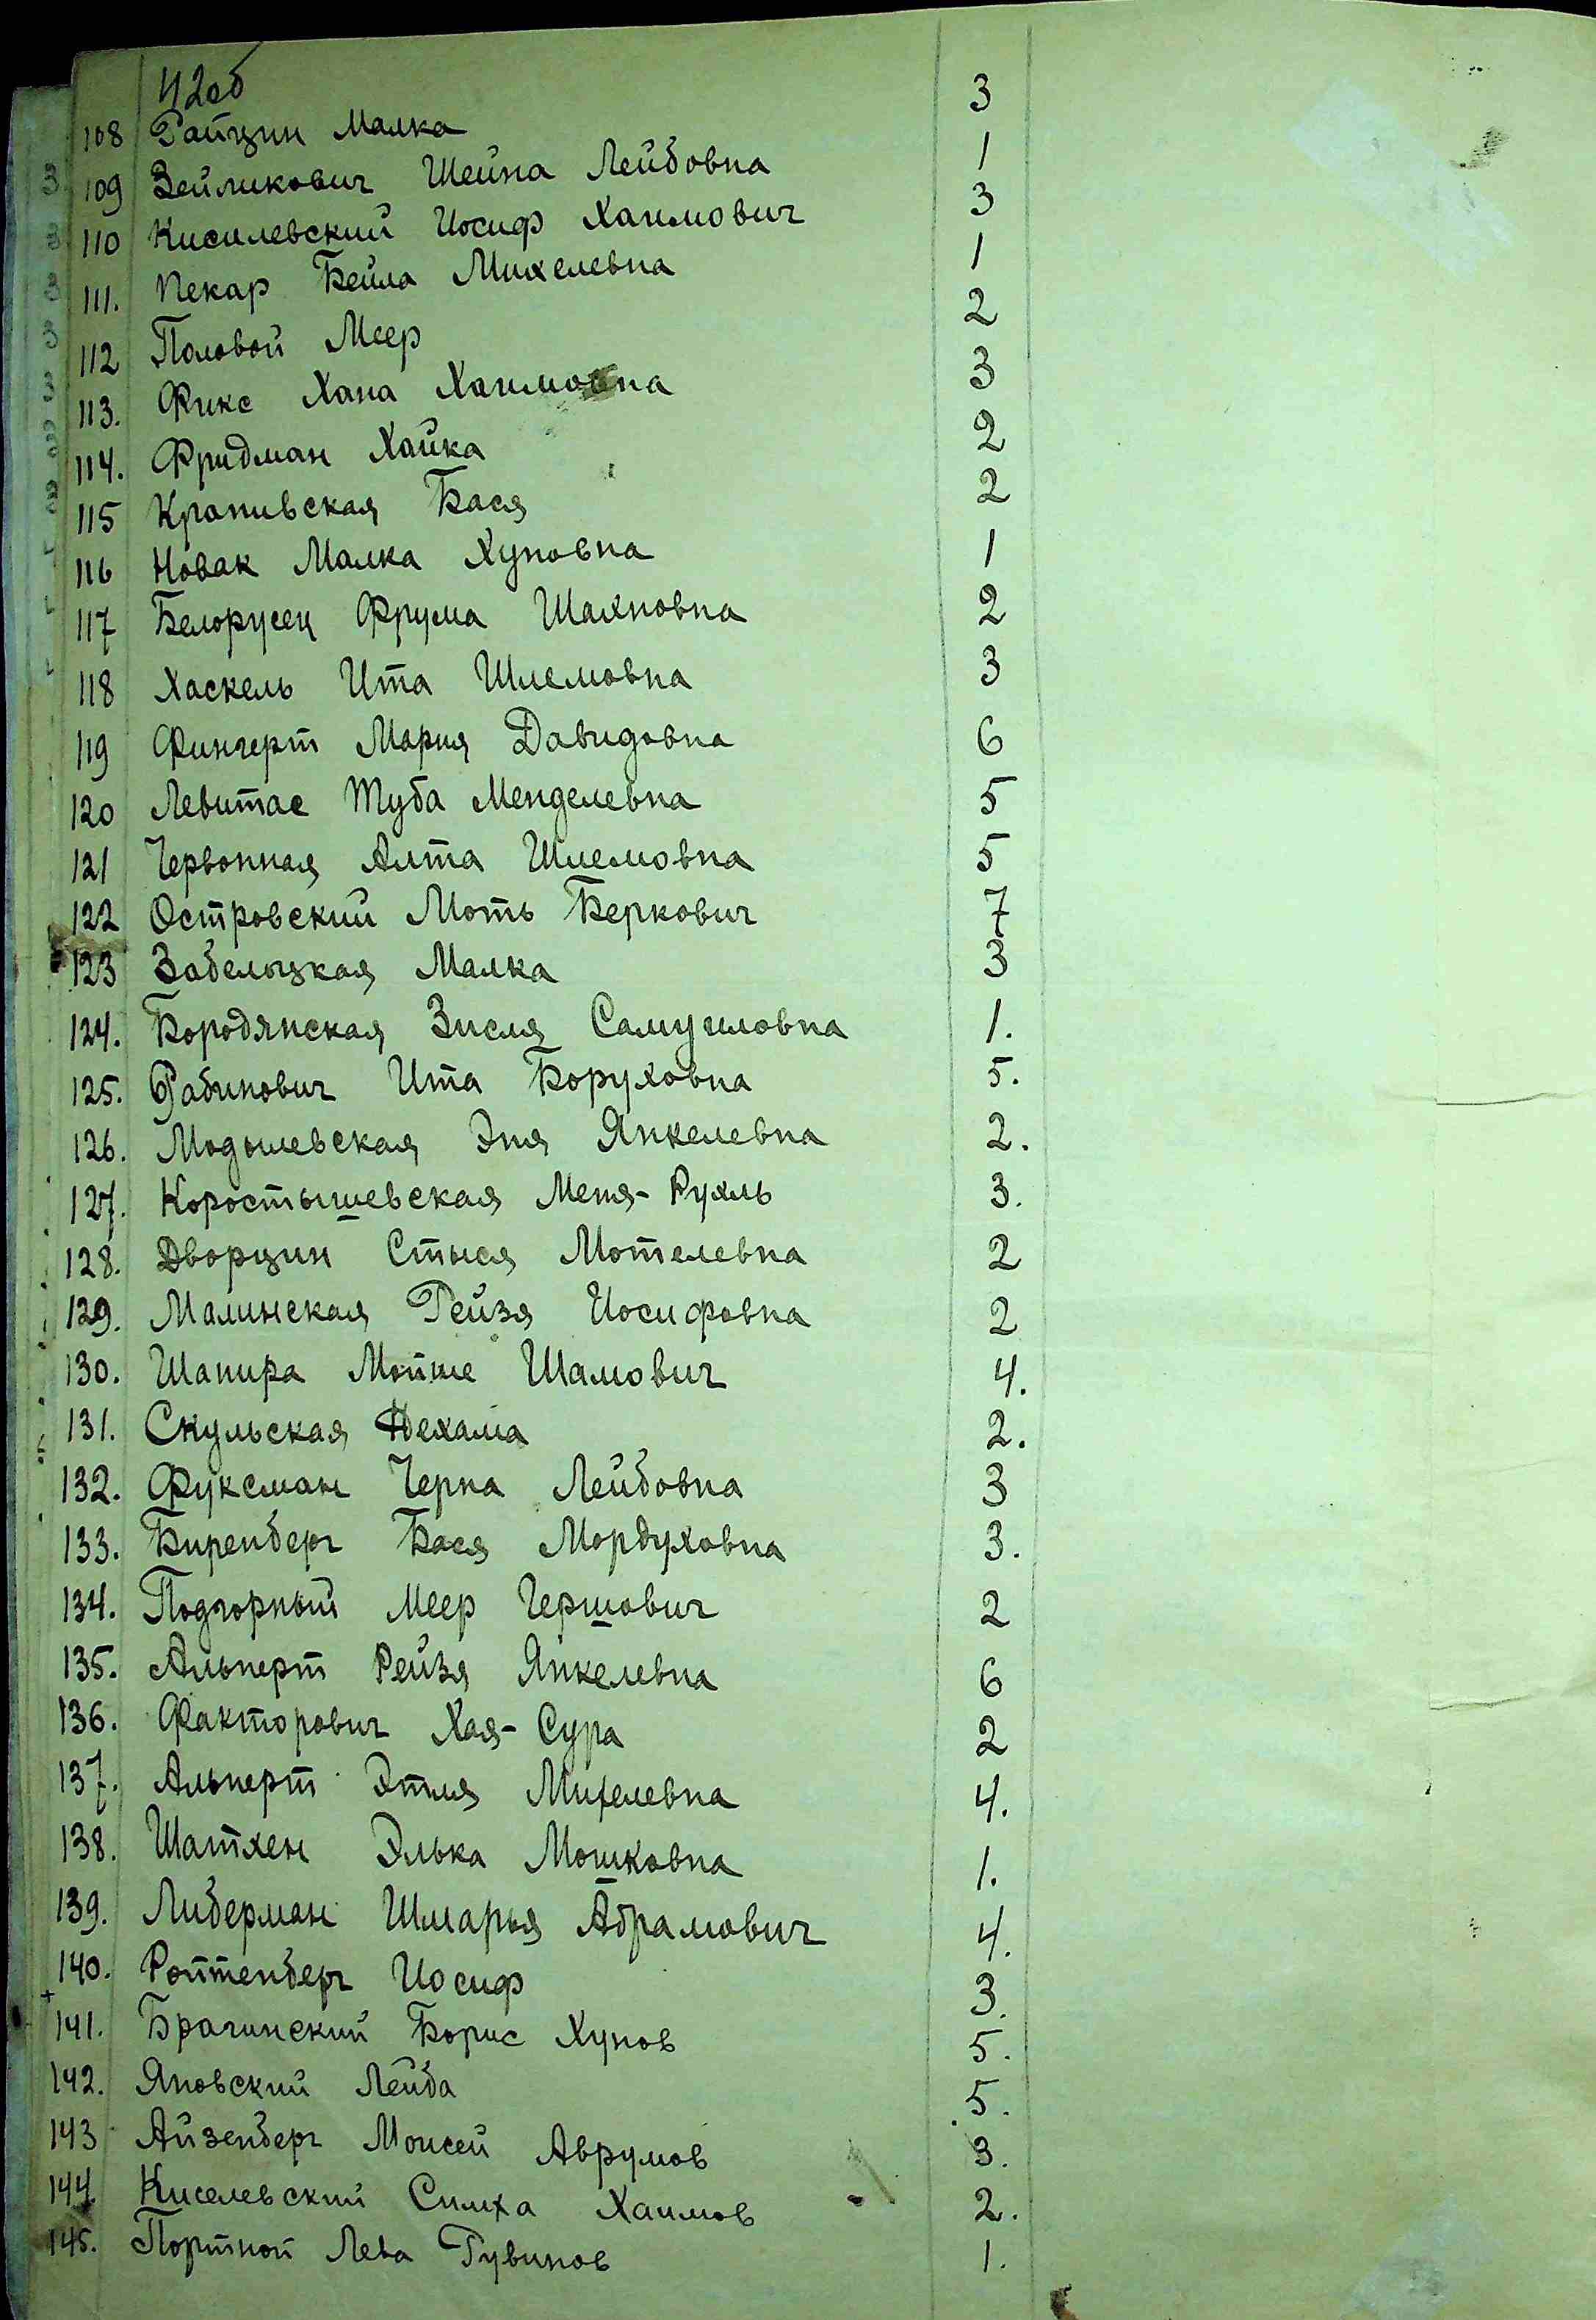 42об
108 Райцин Малка 3
109 Зейликович Шейна Лейбовна 1
110 Кисилевский Иосиф Хаимович 3
111. Пекар Бейла Михелевна 1
112 Половой Меер 2
113. Фикс Хана Хаимовна 3
114. Фридман Хайка 2
115 Крапивская Бася 2
116 Новак Малка Хуновна 1
117 Белорусец Фрума Шахновна 2
118 Хаскель Ита Шлемовна 3
119 Фингерт Мария Давидовна 6
120 Левитас Туба Менделевна 5
121 Червонная Алта Шлемовна 5
122 Островский Моть Беркович 7
123 Забелыцкая Малка 3
124. Бородянская Зисля Самуиловна 1.
125. Рабинович Ита Боруховна 5.
126. Модылевская Эня Янкелевна 2.
127. Коростышевская Меня-Рухль 3.
128. Дворцин Стыся Мотелевна 2
129. Малинская Рейзя Иосифовна 2
130. Шапира Мойше Шамович 4.
131. Скульская Нехама 2.
132. Фуксман Черна Лейбовна 3
133. Биренберг Бася Мордуховна 3.
134. Подгорный Меер Гершович 2
135. Альперт Рейзя Янкелевна 6
136. Факторович Хая-Сура 2
137. Альперт Этля Михелевна 4.
138. Шатхен Элька Мошковна 1.
139. Либерман Шмарья Абрамович 4.
140. Ройтенберг Иосиф 3.
141. Брагинский Борис Хунов 5.
142. Яновский Лейба 5.
143 Айзенберг Моисей Аврумов 3.
144. Киселевский Симха Хаимов 2.
145. Портной Лева Рувинов 1.